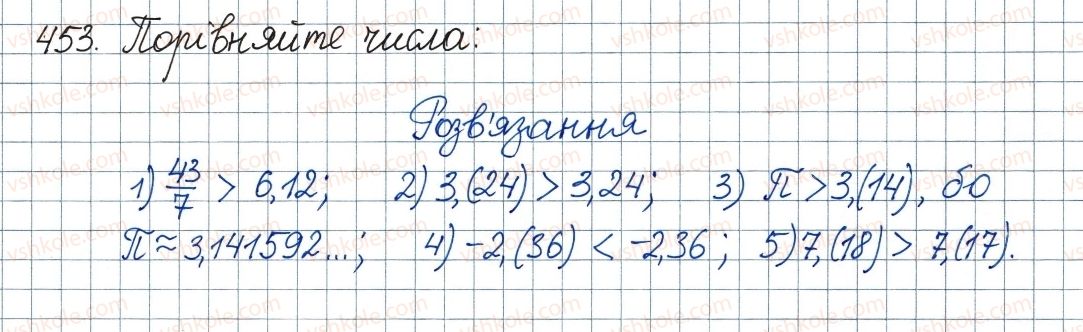 453. Порівняйте числа:
Розв'язання
1) 43/7 > 6,12; 2) 3,(24) > 3,24; 3) π > 3,(14), бо
π ≈ 3,141592...; 4) -2,(36) < -2,36; 5) 7,(18) > 7,(17).